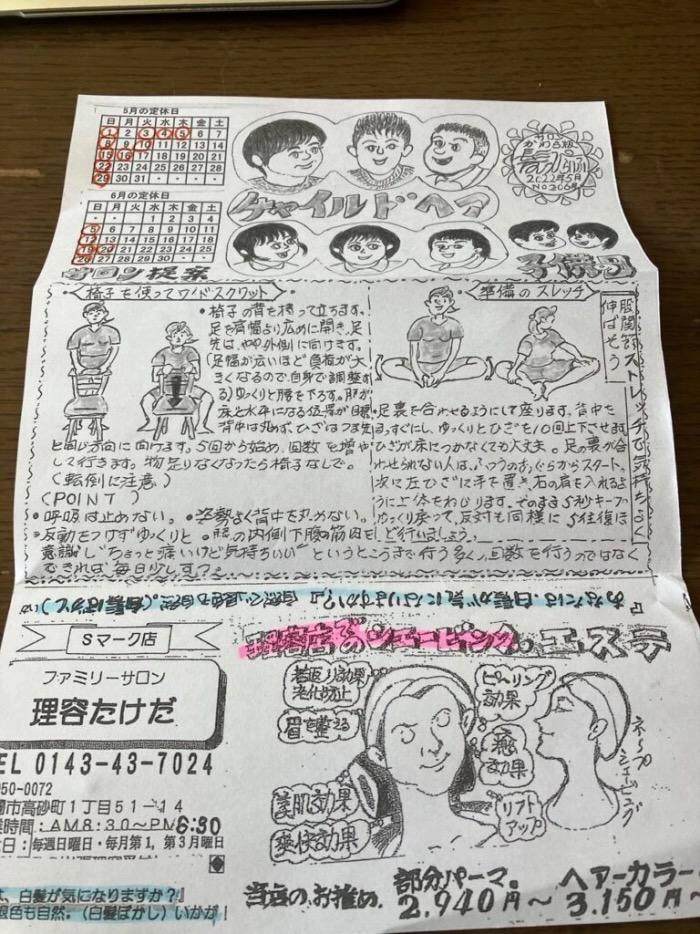 5月の定休日
日 月 火 水 木 金 土
1 2 3 4 5 6 7
8 9 10 11 12 13 14
15 16 17 18 19 20 21
22 23 24 25 26 27 28
29 30 31 ・ ・ ・ ・
6月の定休日
日 月 火 水 木 金 土
・ ・ ・ 1 2 3 4
5 6 7 8 9 10 11
12 13 14 15 16 17 18
19 20 21 22 23 24 25
26 27 28 29 30 ・ ・
サロン
かわら版
2022年5月
No206号
チャイルドヘア
サロン提案
椅子を使ってワイドスクワット
・椅子の背を持って立ちます。
足を肩幅より広めに開き、足
先は、やや外側に向けます。
(足幅が広いほど負荷が大
きくなるので、自身で調整する)
ゆっくりと腰を下ろす。
背中は丸めず、ひざはつま先
と同じ方向に向けます。5回から始め、回数を増や
して行きます。物足りなくなったら椅子なしで。
(転倒に注意)
(POINT)
・呼吸は止めない。・姿勢よく背中を丸めない。
・反動をつけずゆっくりと
準備のストレッチ
股関節ストレッチで気持ちよく
伸ばそう
・足裏を合わせるようにして座ります。背中を
まっすぐにし、ゆっくりとひざを10回上下させます。
ひざが床につかなくても大丈夫。足の裏が合
わせられない人は、ふつうのあぐらからスタート。
次に左ひざに手を置き、右の肩を入れるよ
うに上体をねじります。そのまま5秒キープ
ゆっくり戻って、反対も同様に 5往復ほ
ど行いましょう。
意識し"ちょっと痛いけど気持ちいい"というところまで行う
できれば毎日少しずつ。
『あなたは、白髪が気になりますか?』自然な銀色も自然。(白髪ぼかし)
Sマーク店
ファミリーサロン
理容たけだ
EL 0143-43-7024
050-0072
蘭市高砂町1丁目51-14
業時間:AM8:30~PM6:30
日:毎週日曜日・毎月第1,第3月曜日
理容店でのシェービング。エステ
若返り効果
老化防止
眉を整える
美肌効果
爽快効果
ピーリング
効果
癒し
効果
リフト
アップ
ネープ
シェービング
は、白髪が気になりますか?』
銀色も自然。(白髪ぼかし)いかが!
当店のお推め。
部分パーマ。
2,940円~
ヘアーカラー
3,150円~